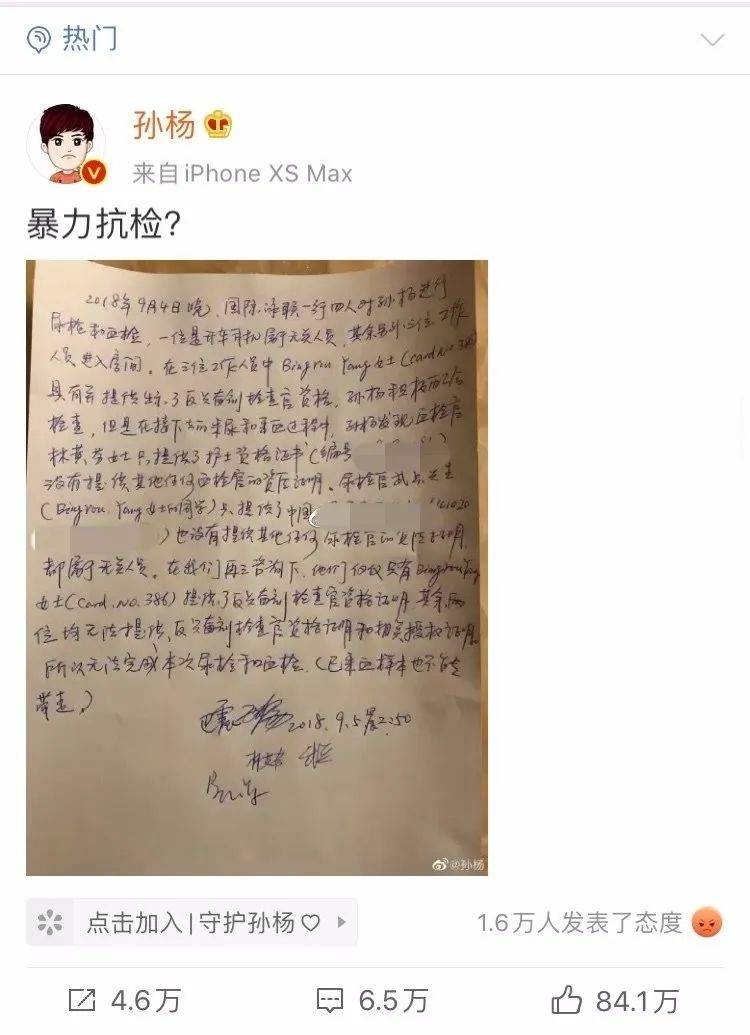 热门
孙杨
来自 iPhone XS Max
暴力抗检?
2018年9月4日晚,国际泳联一行四人对孙杨进行
尿检和血检,一位是开车司机属于无关人员,其余另外三位工作
人员进入房间。在三位工作人员中 Bingrou Yang 女士(card.No.386)
具有并提供出示了反兴奋剂检查官资格,孙杨积极配合
检查,但是在接下去的采尿和采血过程中,孙杨发现血检官
林黄 女士只提供了护士资格证书(编号
没有提供其他任何血检官的资质证明。尿检官
(Bingrou Yang女士的同学)只提供了中国
)也没有提供其他任何尿检官的资质证明
都属于无关人员。在我们再三咨询下,他们仅仅只有Bingrou Yang
女士(Card.No.386)提供了反兴奋剂检查官资格证明,其余两
位均无法提供反兴奋剂检查官资格证明和相关授权证明。
所以无法完成本次尿检和血检。(已采血样本也不能
带走。)
2018.9.5晨2:50
@孙杨
点击加入|守护孙杨♡
1.6万人发表了态度
4.6万
6.5万
84.1万